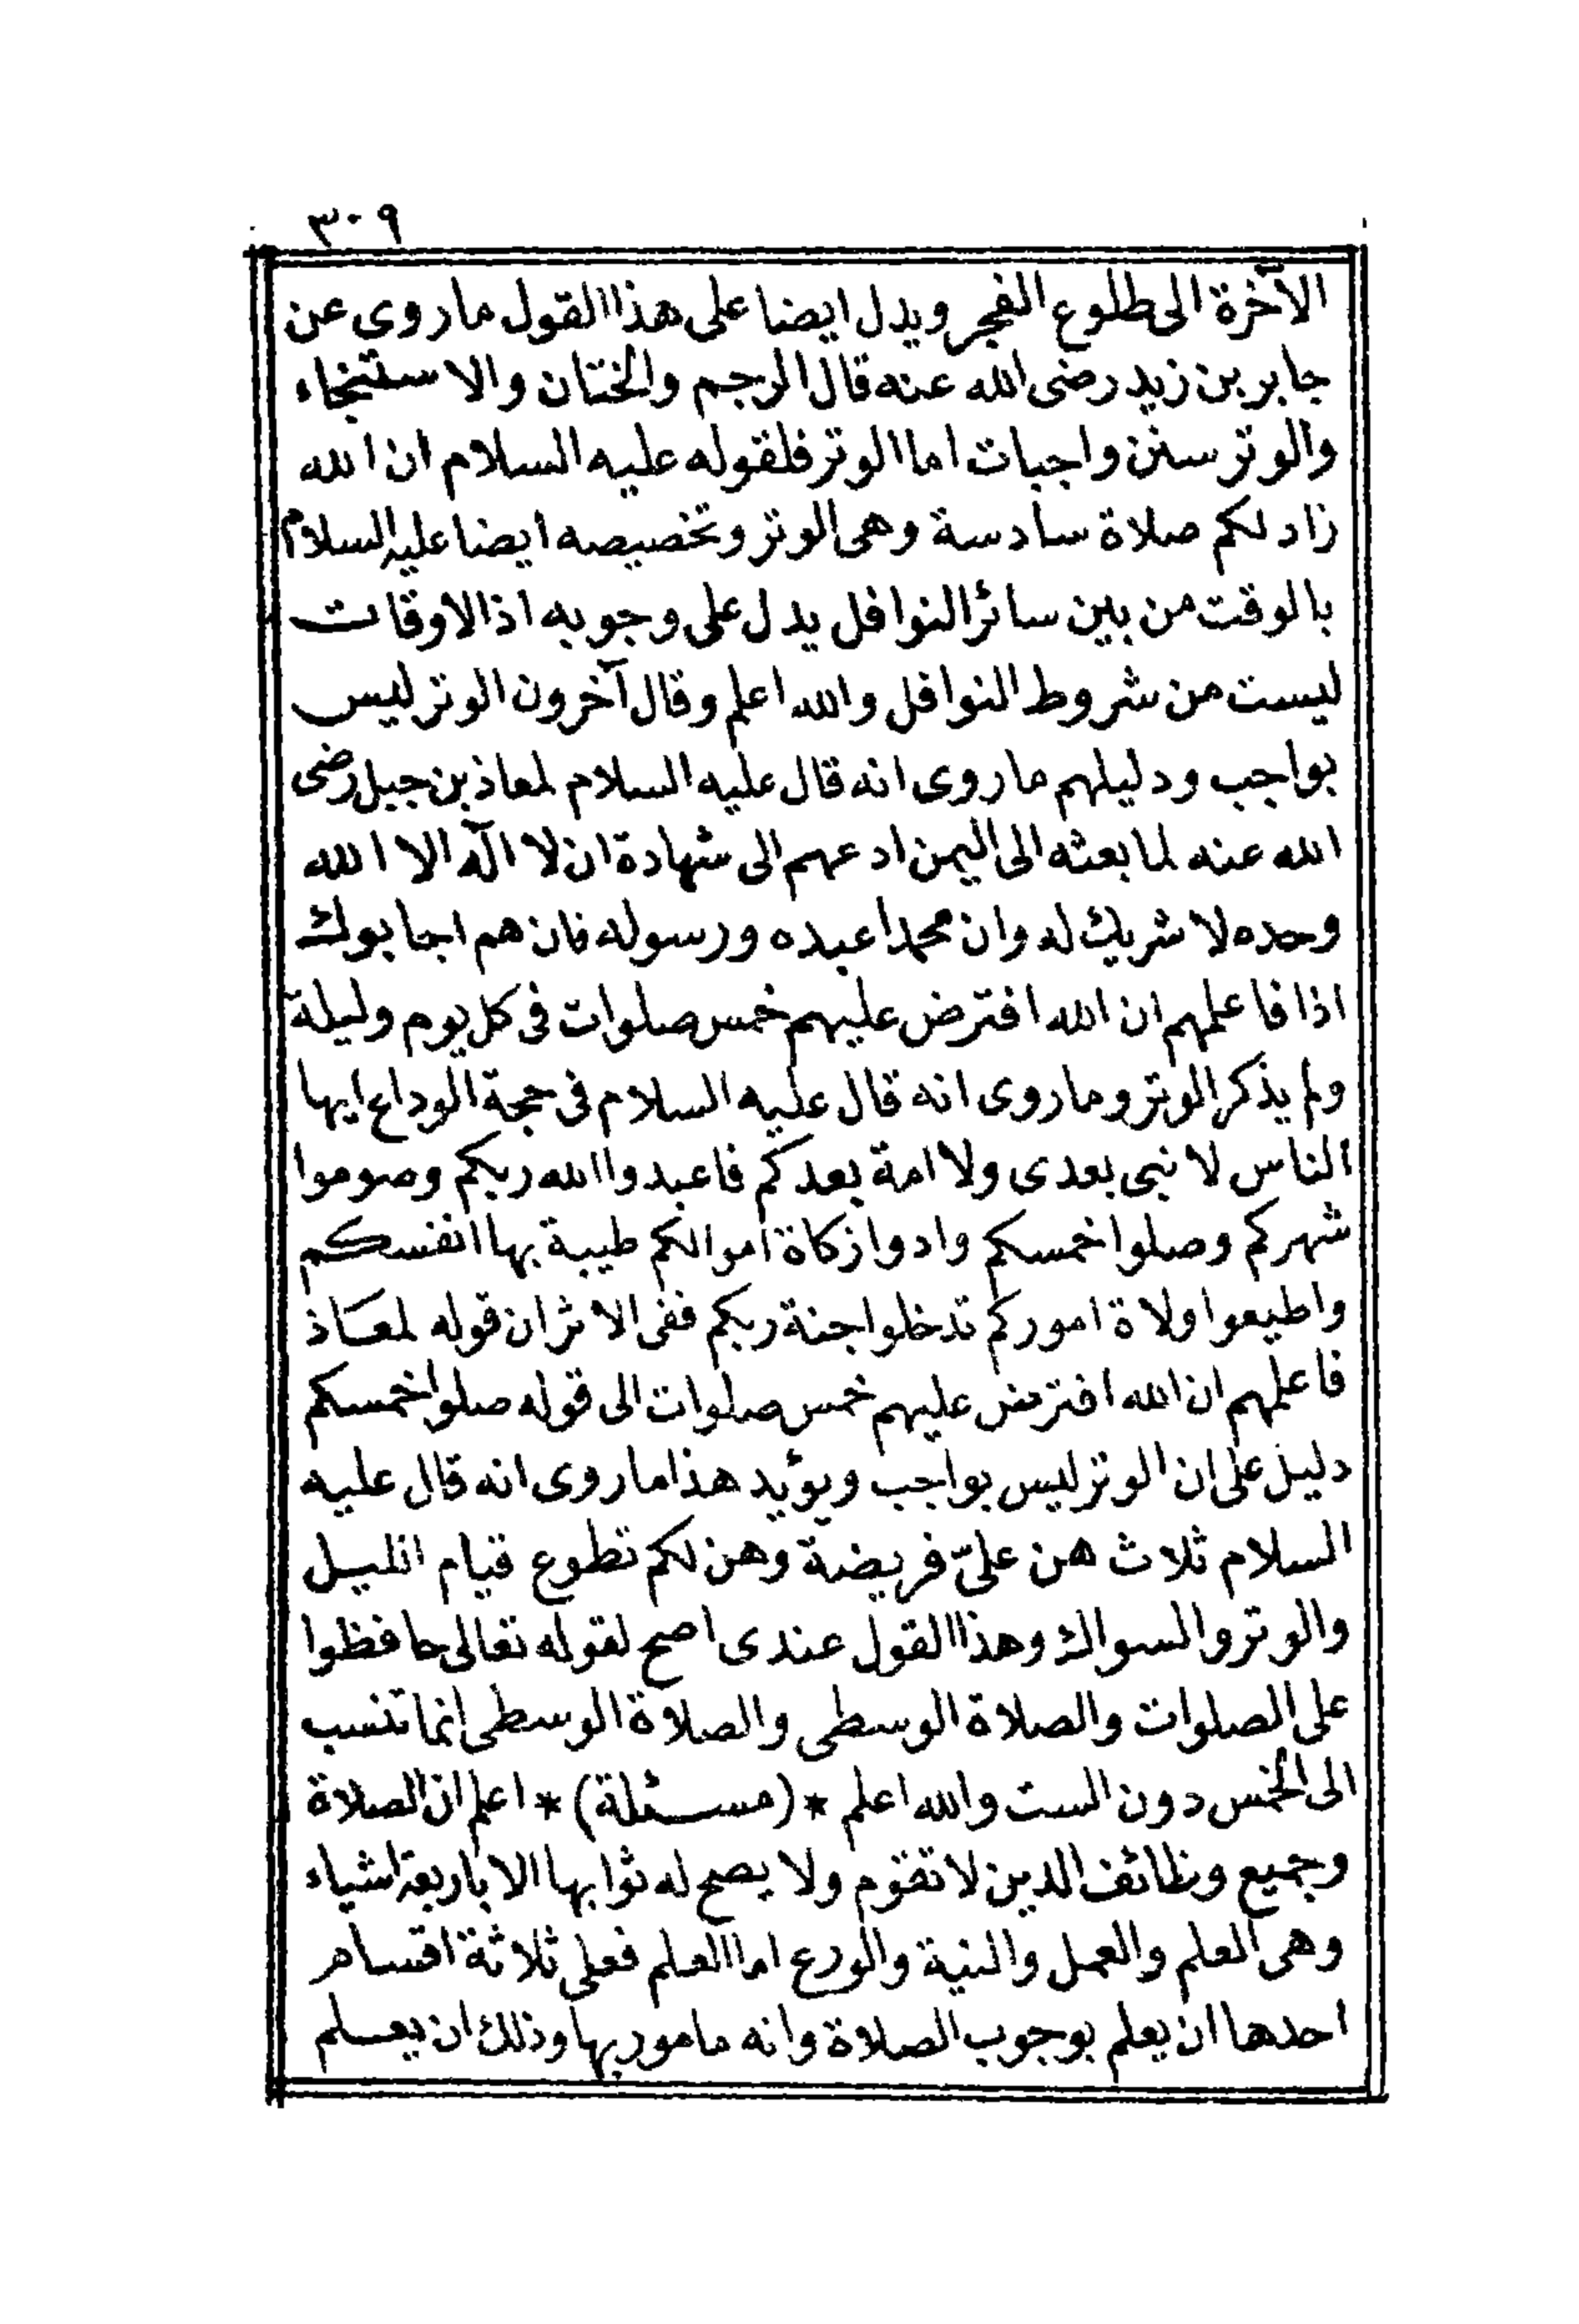 ٣٠٩
الآخرة الى طلوع الفجر ويدل ايضا على هذا القول ما روى عن
جابر بن زيد رضى الله عنه قال الرجم والختان والاستنجاء
والوتر سنن واجبات اما الوتر فلقوله عليه السلام ان الله
زاد لكم صلاة سادسة وهى الوتر وتخصيصه ايضا عليه السلام
بالوقت من بين سائر النوافل يدل على وجوبه اذ الاوقات
ليست من شروط النوافل والله اعلم وقال آخرون الوتر ليس
بواجب ودليلهم ما روى انه قال عليه السلام لمعاذ بن جبل رضى
الله عنه لما بعثه الى اليمن ادعهم الى شهادة ان لا اله الا الله
وحده لا شريك له وان محمدا عبده ورسوله فان هم اجابوك
اذا فاعلمهم ان الله افترض عليهم خمس صلوات فى كل يوم وليلة
ولم يذكر الوتر وما روى انه قال عليه السلام فى حجة الوداع ايها
الناس لا نبى بعدى ولا امة بعدكم فاعبدوا الله ربكم وصوموا
شهركم وصلوا خمسكم وادوا زكاة اموالكم طيبة بها انفسكم
واطيعوا ولاة اموركم تدخلوا جنة ربكم ففى الاثر ان قوله لمعاذ
فاعلمهم ان الله افترض عليهم خمس صلوات الى قوله صلوا خمسكم
دليل على ان الوتر ليس بواجب ويؤيد هذا ما روى انه قال عليه
السلام ثلاث هن علىّ فريضة وهن لكم تطوع قيام الليل
والوتر والسواك وهذا القول عندى اصح لقوله تعالى حافظوا
على الصلوات والصلاة الوسطى والصلاة الوسطى انما تنسب
الى الخمس دون الست والله اعلم * (مسئلة) * اعلم ان الصلاة
وجميع وظائف الدين لا تقوم ولا يصح له ثوابها الا باربعة اشياء
وهى العلم والعمل والنية والورع اما العلم فعلى ثلاثة اقسام
احدها ان يعلم بوجوب الصلاة وانه مامور بها وذلك ان يعلم